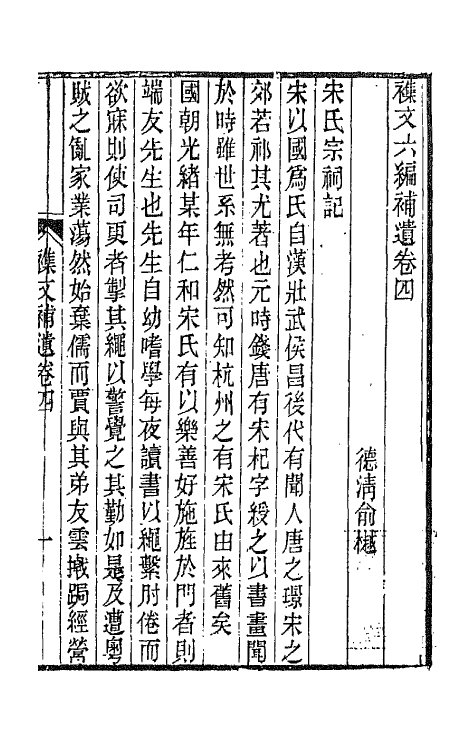 襍文六編補遺卷四
德淸俞樾
宋氏宗祠記
宋以國爲氏自漢壯武侯昌後代有聞人唐之璟宋之
郊若祁其尤著也元時錢唐有宋杞字綬之以書畫聞
於時雖世系無考然可知杭州之有宋氏由來舊矣
國朝光緒某年仁和宋氏有以樂善好施旌於門者則
端友先生也先生自幼嗜學每夜讀書以繩繫肘倦而
欲寐則使司更者掣其繩以警覺之其勤如是及遭粵
賊之亂家業蕩然始棄儒而賈與其弟友雲撠挶經營
襍文補遺卷四
一